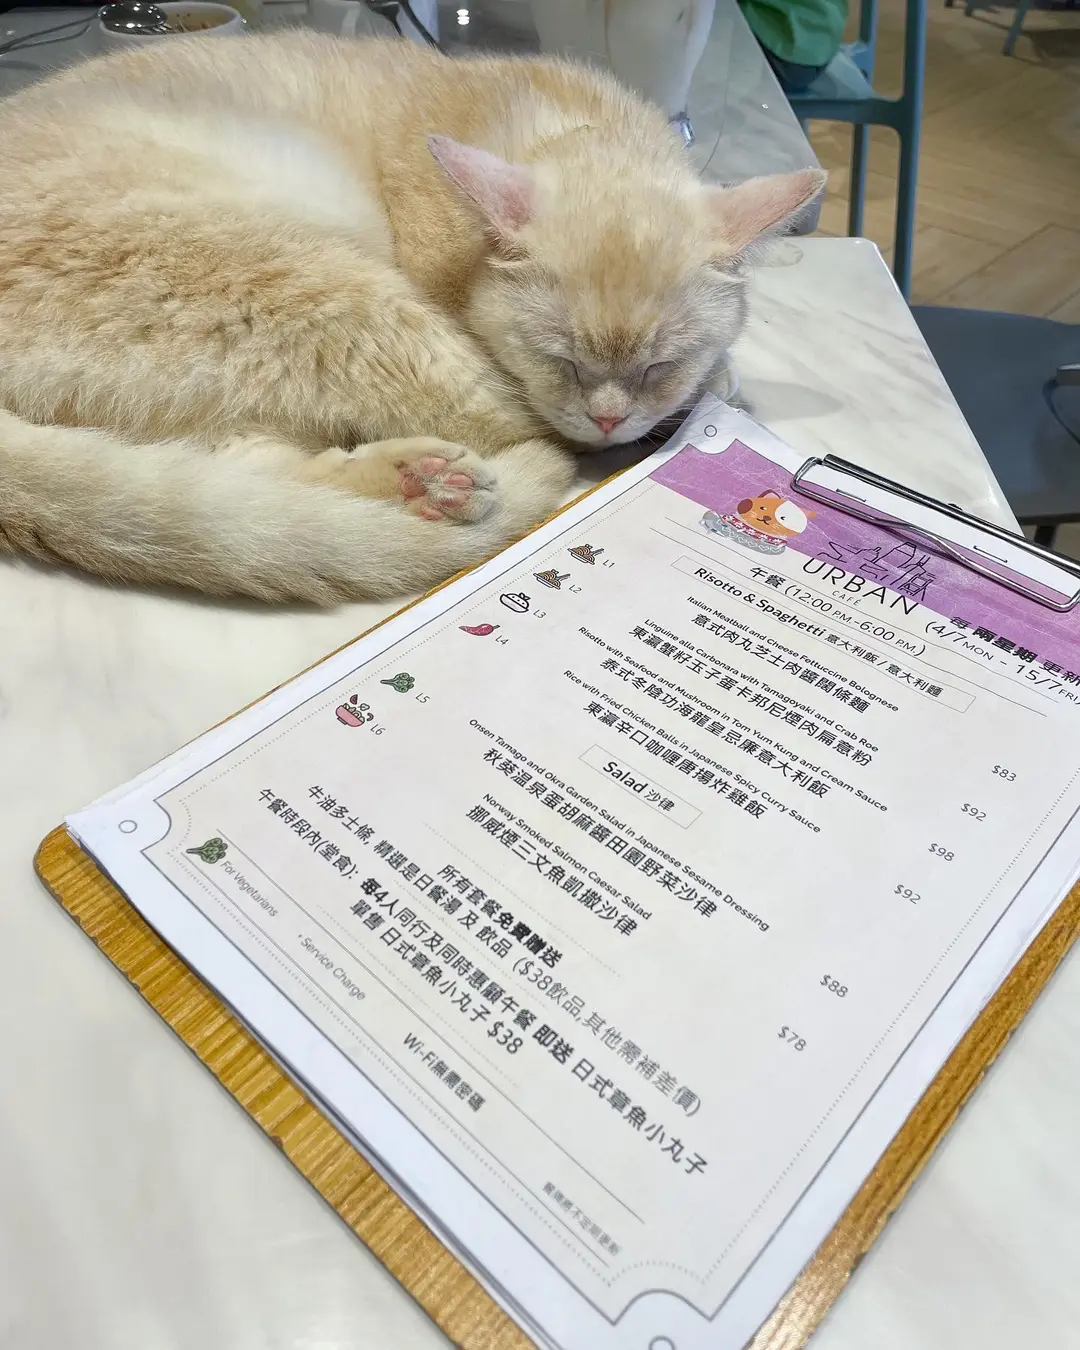 URBAN
CAFÉ
每兩星期更新
(4/7 MON - 15/7 FRI
午餐 (12:00 P.M.-6:00 P.M.)
Risotto & Spaghetti 意大利飯 / 意大利麵
L1
Italian Meatball and Cheese Fettuccine Bolognese
意式肉丸芝士肉醬闊條麵
$83
L2
Linguine alla Carbonara with Tamagoyaki and Crab Roe
東瀛蟹籽玉子蛋卡邦尼煙肉扁意粉
$92
L3
Risotto with Seafood and Mushroom in Tom Yum Kung and Cream Sauce
泰式冬陰功海龍皇忌廉意大利飯
$98
L4
Rice with Fried Chicken Balls in Japanese Spicy Curry Sauce
東瀛辛口咖喱唐揚炸雞飯
$92
Salad 沙律
L5
Onsen Tamago and Okra Garden Salad in Japanese Sesame Dressing
秋葵温泉蛋胡麻醬田園野菜沙律
$88
L6
Norway Smoked Salmon Caesar Salad
挪威煙三文魚凱撒沙律
$78
所有套餐免費贈送
牛油多士條, 精選是日餐湯 及 飲品 ($38飲品,其他需補差價)
午餐時段內(堂食): 每4人同行及同時惠顧午餐 即送 日式章魚小丸子
單售 日式章魚小丸子 $38
For Vegetarians
• Service Charge
Wi-Fi無需密碼
餐牌將不定期更新